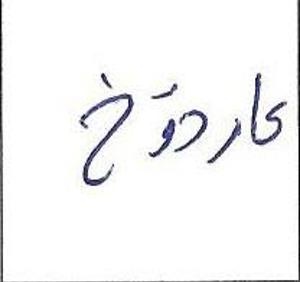 عاردوَخ